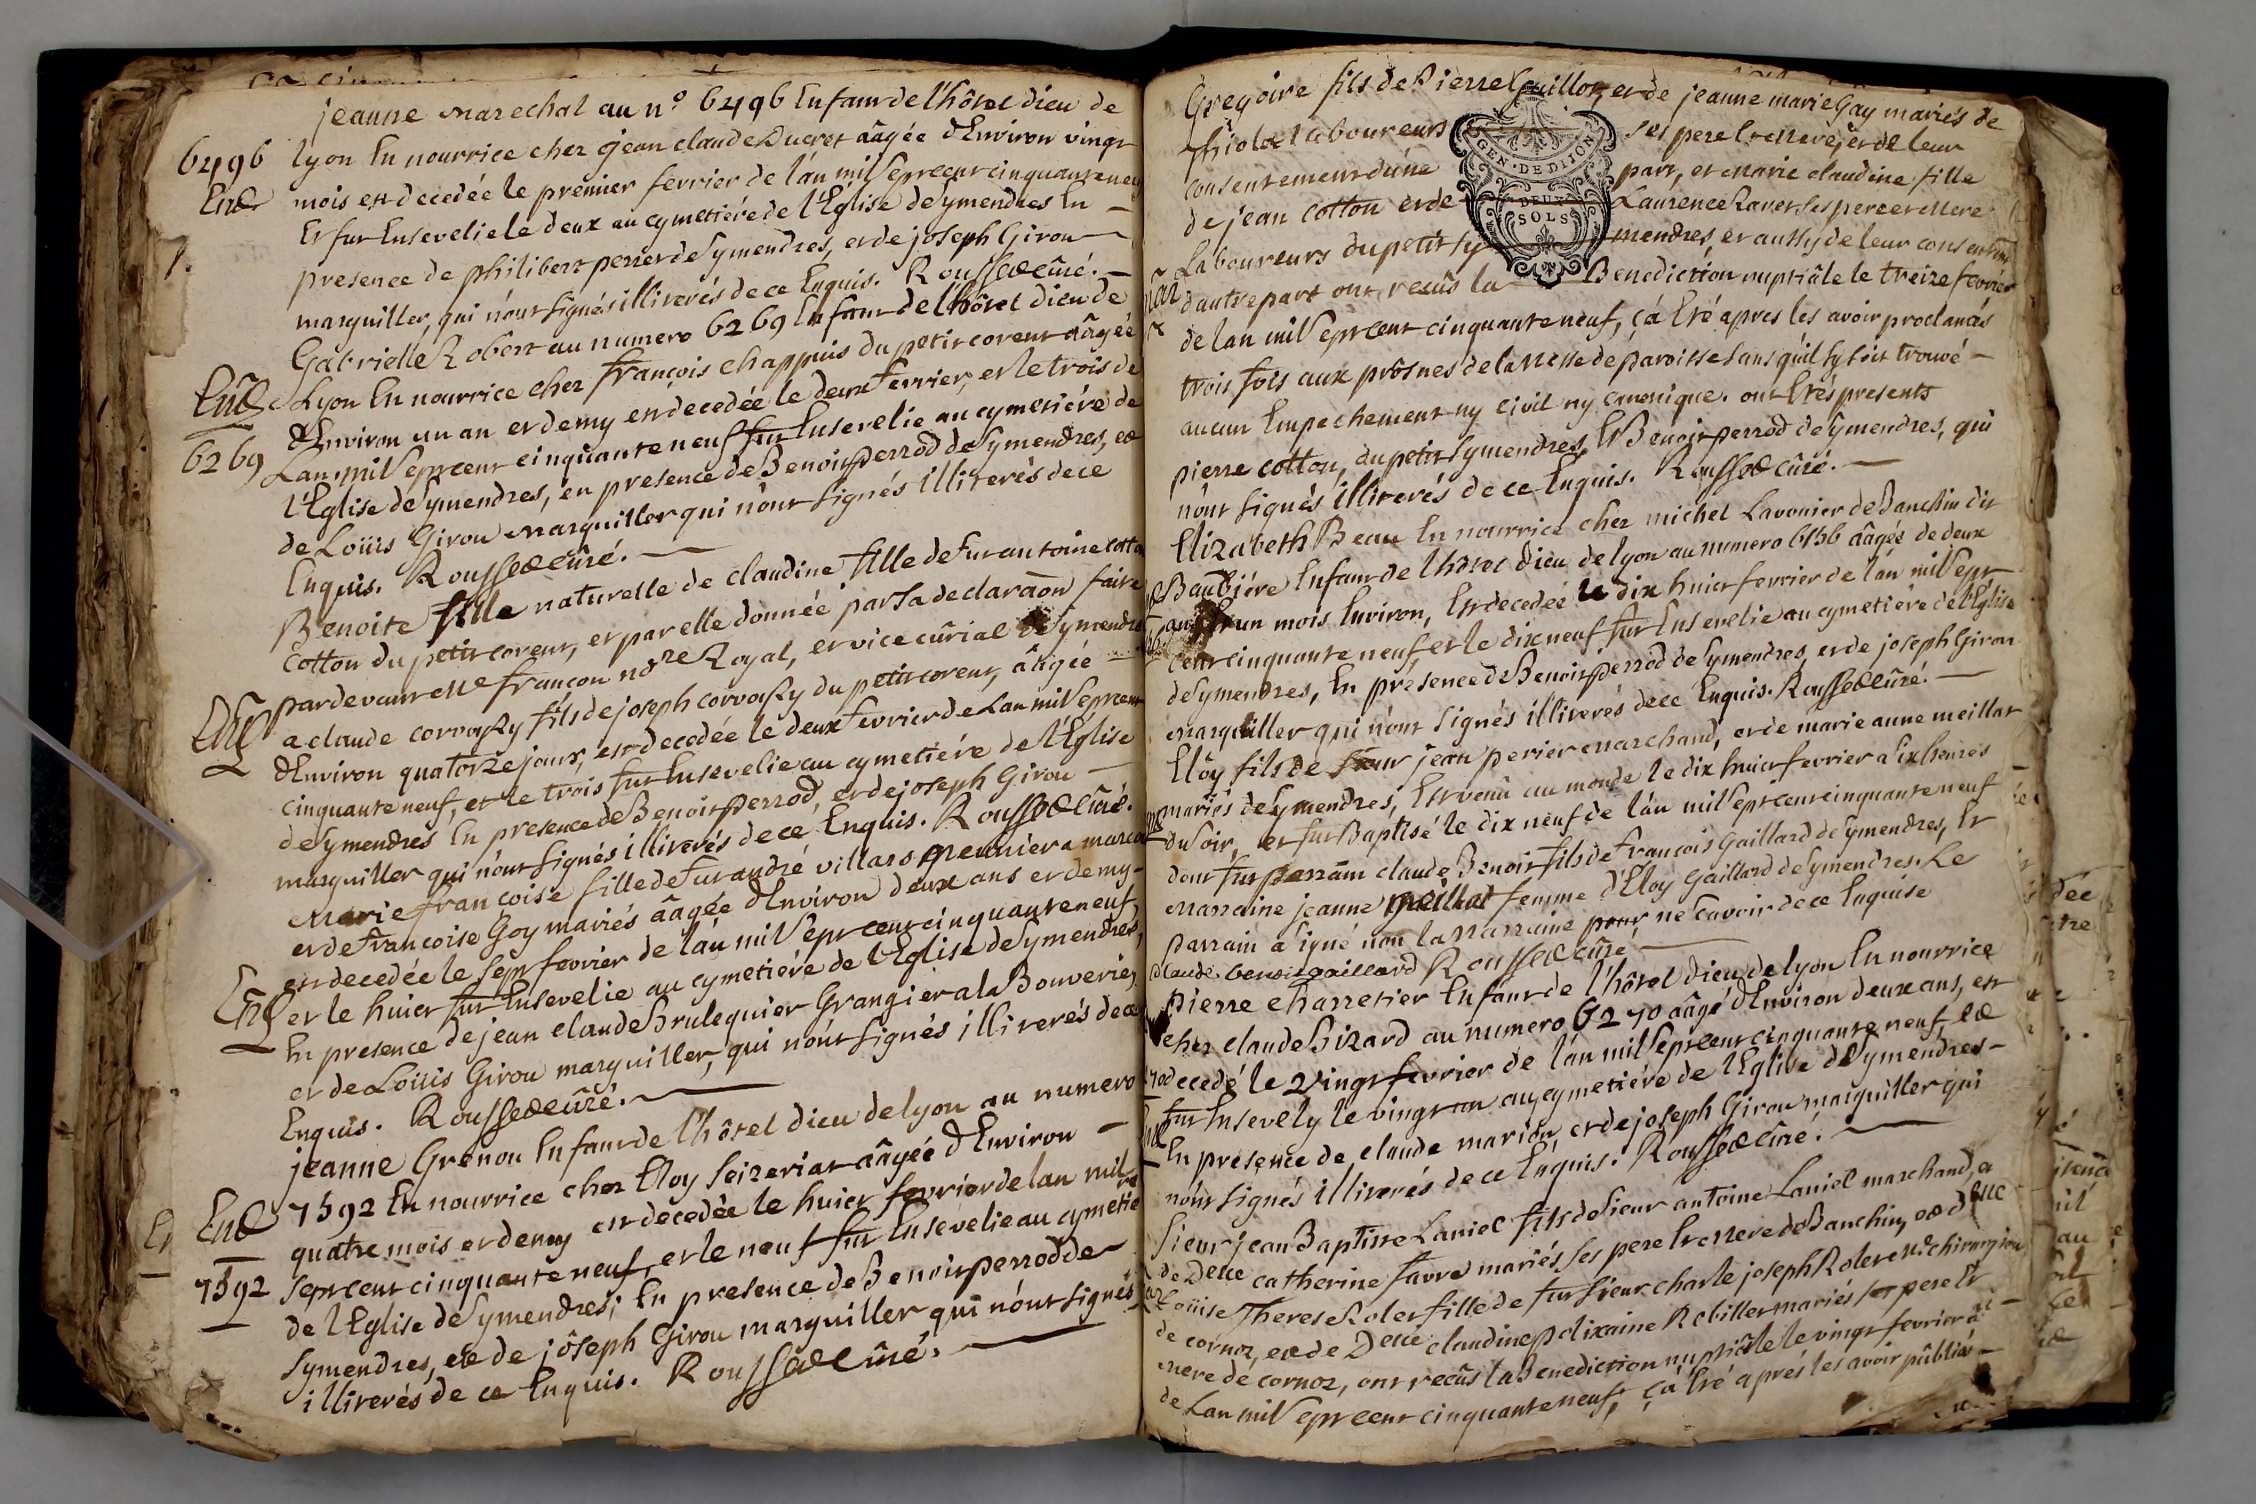 jeanne marechal au n.º 6496 Enfant de l'hôtel dieu de
6496 lyon En nourrice chez jean claude Ducret âagée d'Environ vingt
End mois est decedée le premier fevrier de l'an mil sept cent cinquante neuf
Et fut Ensevelie le deux au cymetiére de l'Église de Symendres En
presence de philibert perier de Symendres, et de joseph Girou
marguiller, qui n'ont signés illiterés de ce Enquis. Roussed cûré.
Gabrielle Robert au numero 6269 Enfant de l'hôtel dieu de
End Lyon En nourrice chez françois chappuis du petit corent âagée
d'Environ un an et demy est decedée le deux fevrier, et le trois de
6269 Lan mil sept cent cinquante neuf fut Ensevelie au cymetiére de
l'Eglise de Symendres, en presence de Benoit perrod de Symendres, et
de Loüis Girou marguiller qui n'ont signés illiterés de ce
Enquis. Roussed cûré.
Benoite fille naturelle de claudine fille de fut antoine cotton
cotton du petit corent, et par elle donnée par sa declaraôn faite
pardevant me francon nore Royal, et vice cûrial de Symendres
a claude corvasy fils de joseph corvasy du petit corent, âagée
d'Environ quatorze jours, est decedée le deux fevrier de Lan mil sept cent
cinquante neuf, et le trois fut Ensevelie au cymetiére de l'Église
de Symendres En presence de Benoit perrod, et de joseph Girou
marguiller qui n'ont signés illiterés de ce Enquis. Roussed cûré.
Marie françoise fille de fut andré villars meunier a marcou
et de francoise Goy mariés âagée d'Environ deux ans et demy
est decedée le sept fevrier de l'an mil sept cent cinquante neuf,
et le huict fut Ensevelie au cymetiére de l'Eglise de Symendres,
En presence de jean claude Brulequier Grangier a la Bouverie,
et de Loüis Girou marguiller, qui n'ont signés illiterés de ce
Enquis. Roussed cûré.
jeanne Grenou Enfant de l'hôtel dieu de lyon au numero
End 7592 En nourrice chez Eloy Seizeriat âagée d'Environ
quatre mois et demy est decedée le huict fevrier de lan mil
7592 sept cent cinquante neuf, et le neuf fut Ensevelie au cymetiére
de l'Eglise de Symendres, En presence de Benoit perrod de
Symendres, et de jôseph Girou marguiller qui n'ont signés
illiterés de ce Enquis. Roussed cûré.
Gregoire fils de Pierre Guillot, et de jeanne marie Gay mariés de
laboureurs ses pere et mere, et de leur
consentement d'une part, et marie claudine fille
de jean cotton et de Laurence Ravet, ses pere et mere
GEN. DE DIJON
DEUX
SOLS
Laboureurs du petit Symendres, et aussy de leur consentmt
d'autre part ont recûs la Benediction nuptiâle le treize fevrier
de lan mil sept cent cinquante neuf, ç'a Eté apres les avoir proclamés
trois fois aux prônes de la Messe de paroisse sans qu'il sy soit trouvé
aucun Empechement ny civil ny canonique. ont Etés presents
pierre cotton, du petit Symendres, Et Benoit perrod de Symendres, qui
n'ont signés illiterés de ce Enquis. Roussed cûré.
Elizabeth Beau En nourrice chez michel Lavonier de Banchin dit
Baubiére Enfant de l'hôtel dieu de lyon au numero 6156 âagés de deux
ans et un mois Environ, Est decedée le dix huict fevrier de l'an mil sept
cent cinquante neuf, et le dix neuf fut Ensevelie au cymetiére de l'Eglise
de Symendres, En presence de Benoit perrod de Symendres, et de joseph Girou
marguiller qui n'ont signés illiterés de ce Enquis. Roussed cûré.
Elôy fils de sieur jean perier marchand, et de marie anne meillat
mariés de Symendres, Est venû au monde le dix huict fevrier a six heures
du soir, et fut Baptisé le dix neuf de l'an mil sept cent cinquante neuf
dont fut parrain claude Benoit fils de françois Gaillard de Symendres, Et
marraine jeanne meillat femme d'Eloy Gaillard de Symendres. Le
parrain a signé non la marraine pour ne savoir de ce Enquise
claude benoit gaillard Roussed cûré
pierre charretier Enfant de l'hôtel dieu de lyon En nourrice
chez claude Bizard au numero 6270 âagé d'Environ deux ans, est
decedé le vingt fevrier de l'an mil sept cent cinquante neuf, et
fut Ensevely le vingt un au cymetiére de l'Eglise de Symendres
En presence de claude marion, et de joseph Girou marguiller qui
n'ont signés illiterés de ce Enquis. Roussed cûré.
Sieur jean Baptiste Laniel fils de sieur antoine Laniel marchand, et
de Delle catherine favre mariés ses pere Et mere de Banchin, et delle
Loüise Therese Rolet fille de fut sieur charle joseph Rolet md chirurgien
de cornoz, et de Delle claudine polixaine Robillet mariés ses pere Et
mere de cornoz, ont recûs la Benediction nuptiâle le vingt fevrier
de Lan mil sept cent cinquante neuf, ç'a Eté aprés les avoir pûbliés